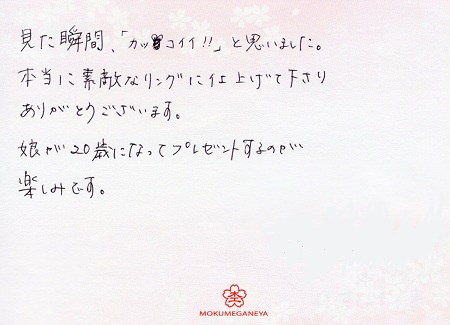 見た瞬間、「カッコイイ!!」と思いました。
本当に素敵なリングに仕上げて下さり
ありがとうございます。
娘が20歳になってプレゼントするのが
楽しみです。
MOKUMEGANEYA